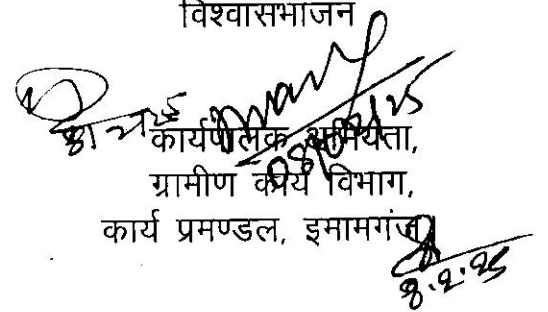 विश्वासभाजन
कार्यपालक अभियंता,
ग्रामीण कार्य विभाग,
कार्य प्रमण्डल, इमामगंज।
8.2.25